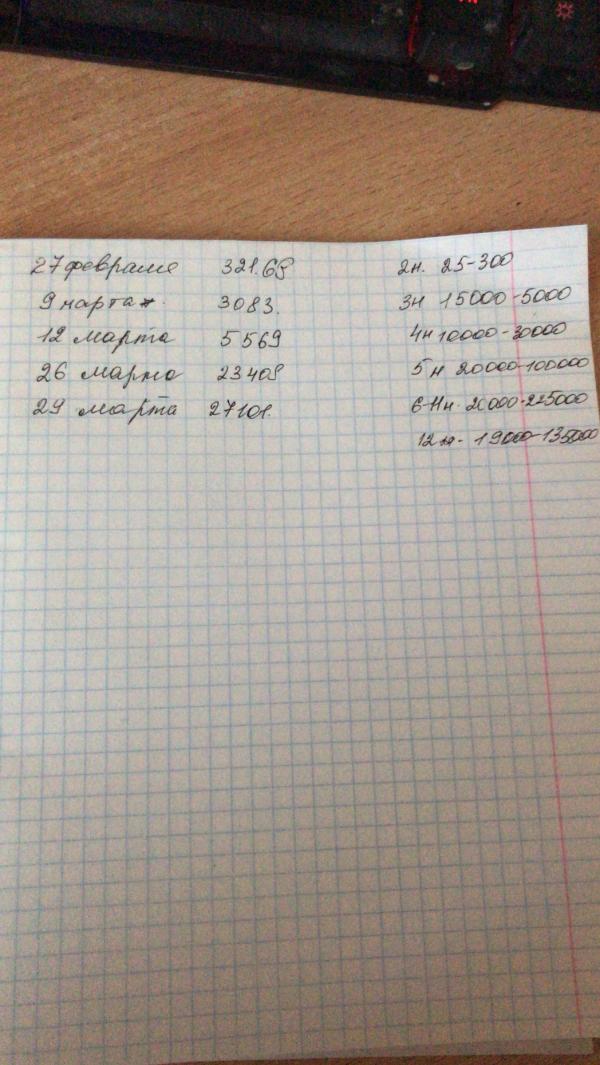 27 февраля 321.68 2н. 25-300
9 марта 3083. 3н 15000-5000
12 марта 5569 4н 10000-30000
26 марта 23408 5н 20000-100000
29 марта 27101. 6-11н. 20000-225000
12н. 19000-135000